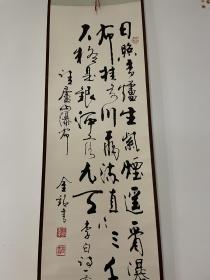 日照香爐生紫煙遙看瀑
布挂前川飛流直下三千
尺疑是銀河落九天李白詩
廬山瀑布 金 書